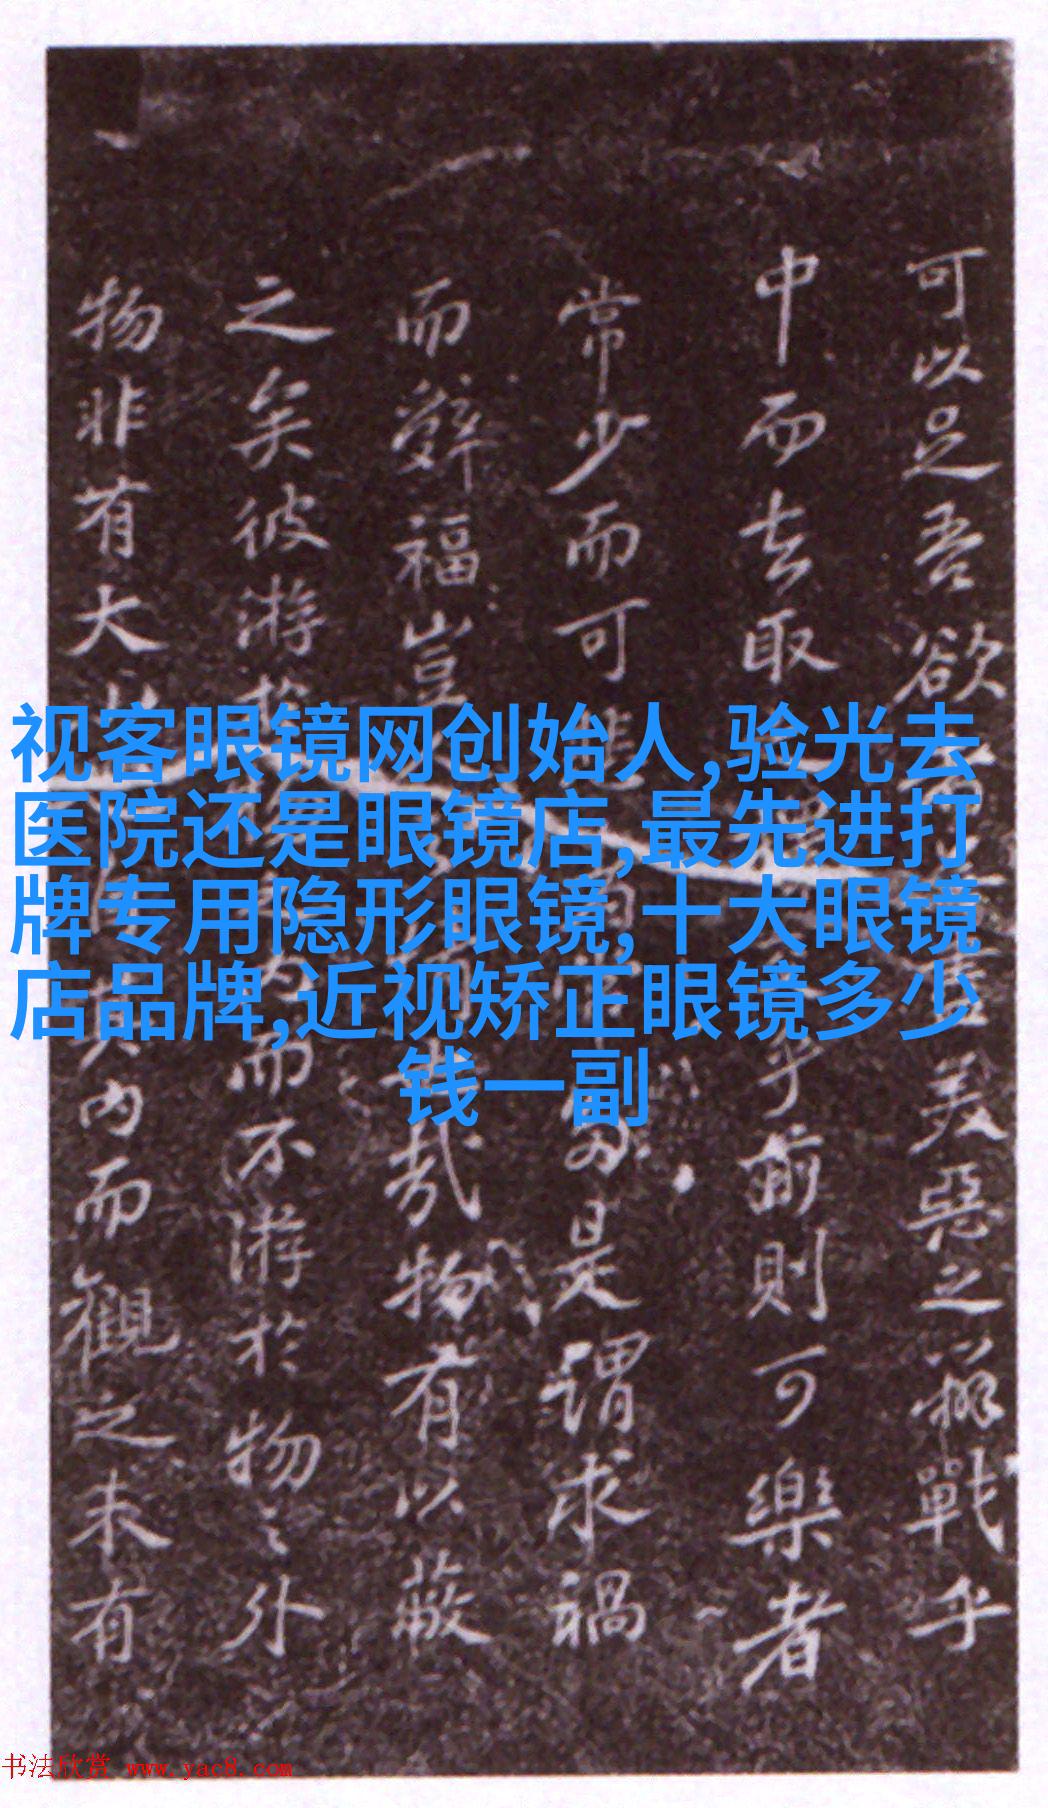 可以足吾欲美惡之辨戰乎
中而去取乎前則可樂者
常少而可悲是謂求禍
而辭福豈哉物有以蔽
之矣彼游於內而不游於物之外
物非有大內而觀之未有
视客眼镜网创始人,验光去
医院还是眼镜店,最先进打
牌专用隐形眼镜,十大眼镜
店品牌,近视矫正眼镜多少
钱一副
书法欣赏 www.yac8.com